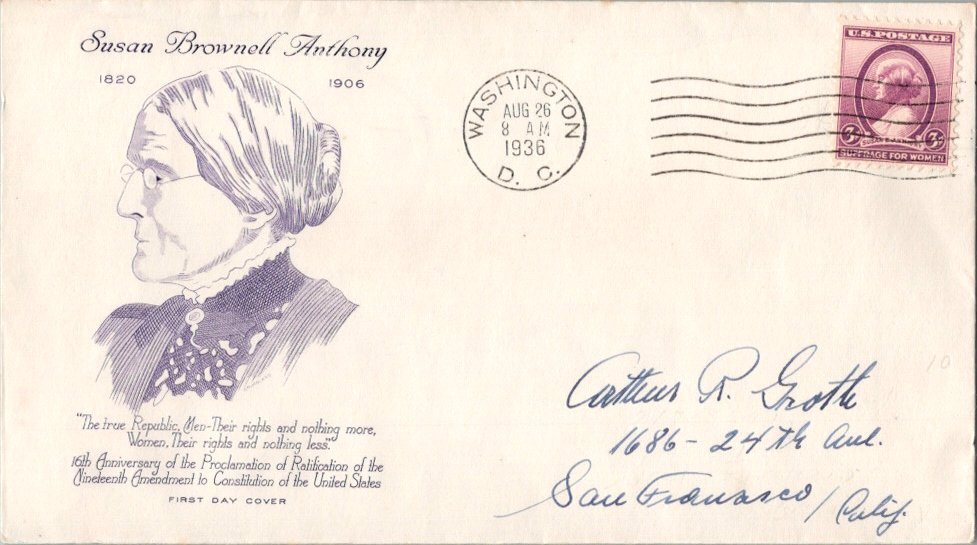 Susan Brownell Anthony
1820 1906
"The true Republic, Men-Their rights and nothing more,
Women, Their rights and nothing less".
16th Anniversary of the Proclamation of Ratification of the
Nineteenth Amendment to Constitution of the United States
FIRST DAY COVER
WASHINGTON
AUG 26
8 AM
1936
D. C.
U.S. POSTAGE
3¢ 3¢
SUSAN B. ANTHONY
SUFFRAGE FOR WOMEN
Arthur R. Groth
1686 - 24th Ave.
San Francisco / Calif.
10